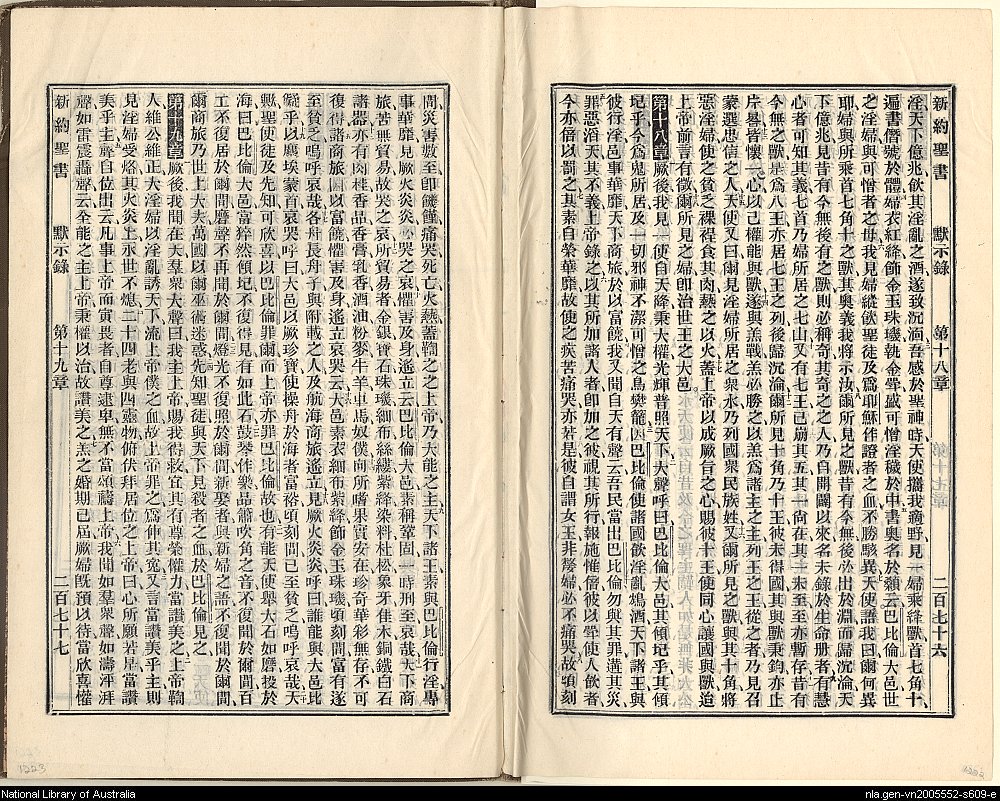 新約聖書 默示錄 第十八章 二百七十六
淫天下億兆飲其淫亂之酒遂致沉湎吾感於聖神時天使攜我適野見一婦乘絳獸首七角十
遍書僭號於體婦衣紅絳飾金玉珠璣執金斝盛可憎淫穢於中書奧名於顙云巴比倫大邑世
之淫婦與可憎者之母我見婦縱飲聖徒及爲耶穌作證者之血不勝駭異天使語我曰爾何異
耶婦與所乘首七角十之獸其奧義我將示汝爾所見之獸昔有今無後必出於淵而歸沉淪天
下億兆見昔有今無後有之獸則必稱奇其奇之之人乃自開闢以來名未錄於生命册者有慧
心者可知其義七首乃婦所居之七山又有七王已崩其五其一尙在其一未至至亦暫存昔有
今無之獸是爲八王亦居七王之列後歸沉淪爾所見十角乃十王彼未得國其與獸秉鈞亦止
片晷皆懷一心以己權能與獸遂與羔戰羔必勝之以羔爲諸主之主列王之王從之者乃見召
蒙選忠信之人天使又曰爾見淫婦所居之衆水乃列國衆民族姓又爾所見之獸與其十角將
惡淫婦使之貧乏裸裎食其肉爇之以火蓋上帝以成厥旨之心賜彼十王使同心讓國與獸迨
上帝前言有徵爾所見之婦卽治世王之大邑
第十八章 厥後我見一天使自天降秉大權光輝普照天下大聲呼曰巴比倫大邑其傾圮乎其傾
圮乎今爲鬼所居及一切邪神不潔可憎之鳥樊籠因巴比倫使諸國飲淫亂鴆酒天下諸王與
彼行淫邑事華靡天下商旅於以富饒我又聞自天有聲云吾民當出巴比倫勿與其罪遘其災
罪惡滔天其不義上帝錄之以其所加諸人者卽加之彼視其所行報施惟倍彼以斝使人飲者
今亦倍以罰之其素自榮華靡故使之疾苦痛哭亦若是彼自謂女王非嫠婦必不痛哭故頃刻
間災害數至卽饑饉痛哭死亡火爇蓋鞫之之上帝乃大能之主天下諸王素與巴比倫行淫專
事華靡見厥火炎炎必哭之哀懼害及身遙立云巴比倫大邑素稱鞏固一時刑至哀哉天下商
旅苦無貿易故哭之哀所貿易者金銀寶石珠璣細布絲縷紫絳染料杜松象牙佳木銅鐵白石
諸器亦有肉桂香品香膏乳香酒油粉麥牛羊車馬奴僕向所嗜果實安在珍奇華彩無存不可
復得諸商旅因以富饒懼害及身遙立哀哭云大邑素衣細布紫絳飾金玉珠璣頃刻間富有遂
至貧乏嗚呼哀哉各舟長舟子與附載之人及航海商旅遙立見厥火炎炎呼曰誰能與大邑比
儗乎以塵埃蒙首哀哭呼曰大邑以厥珍寶使操舟於海者富裕頃刻間已至貧乏嗚呼哀哉天
與聖使徒及先知可欣喜以巴比倫罪爾而上帝亦罪巴比倫故也有能天使舉大石如磨投於
海曰巴比倫大邑猝然傾圮不復得見有如此石鼓琴作樂品簫吹角之音不復聞於爾間百
工不復居於爾間磨聲不再聞於爾間燈光不復照於爾間新娶者與新婦之語不復聞於爾間
爾商旅乃世上大夫萬國以爾巫術迷惑先知聖徒與天下見殺者之血於巴比倫見之
第十九章 厥後我聞在天羣衆大聲曰我主上帝賜我得救宜其有尊榮權力當讚美之上帝鞫
人維公維正大淫婦以淫亂誘天下流上帝僕之血故上帝罪之爲伸其寃又言當讚美乎主則
見淫婦受烙其火炎上永世不熄二十四老與四靈物俯伏拜居位之上帝曰心所願若是當讚
美乎主聲自位出云凡事上帝而寅畏者自尊逮卑無不當頌禱上帝我聞如羣衆聲如濤泙湃
聲如雷震轟聲云全能之主上帝秉權以治故讚美之羔之婚期已屆厥婦旣預以待當欣喜權
新約聖書 默示錄 第十九章 二百七十七
1223
1222
National Library of Australia
nla.gen-vn2005552-s609-e